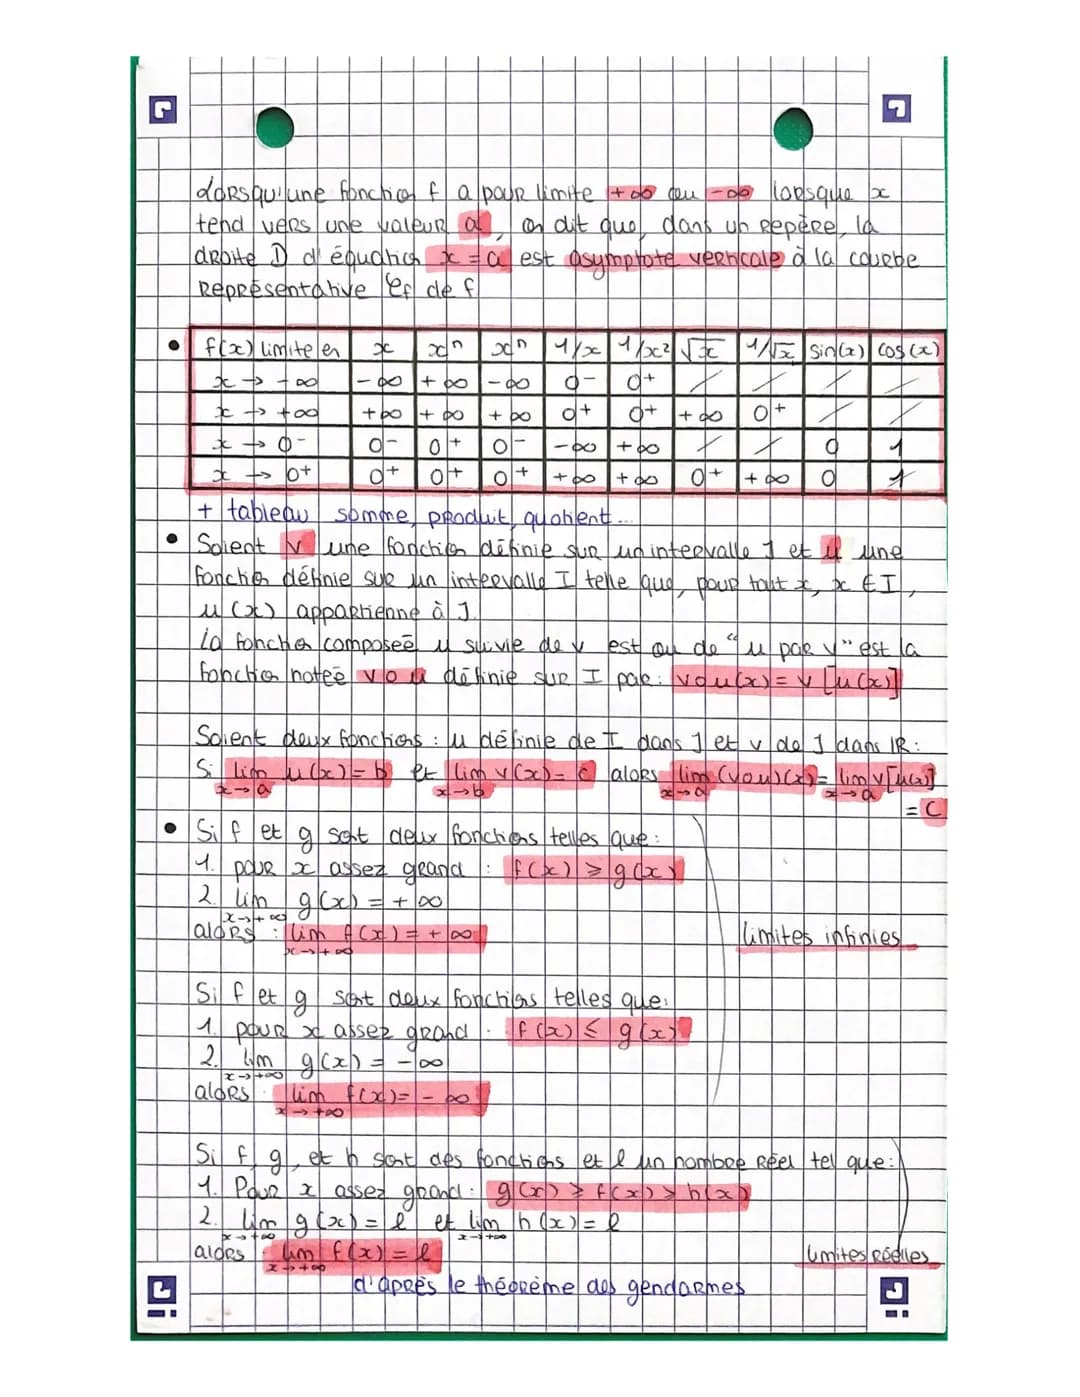 Lorsqu'une fonction f a pour limite +∞ ou -∞ lorsque x
tend vers une valeur a, on dit que, dans un repère, la
droite D d'équation x = a est asymptote verticale à la courbe
représentative Cf de f
• f(x) limite en | x | xⁿ | xⁿ | 1/x | 1/x² | √x | 1/√x | sin(x) | cos(x)
x → -∞ | -∞ | +∞ | -∞ | 0- | 0+ | / | / | / | /
x → +∞ | +∞ | +∞ | +∞ | 0+ | 0+ | +∞ | 0+ | / | /
x → 0- | 0- | 0+ | 0- | -∞ | +∞ | / | / | 0 | 1
x → 0+ | 0+ | 0+ | 0+ | +∞ | +∞ | 0+ | +∞ | 0 | 1
+ tableau somme, produit, quotient...
• Soient v une fonction définie sur un intervalle J et u une
fonction définie sur un intervalle I telle que, pour tout x, x ∈ I,
u(x) appartienne à J.
La fonction composée u suivie de v est ou de "u par v" est la
fonction notée v o u définie sur I par : vou(x) = v [u(x)]
Soient deux fonctions : u définie de I dans J et v de J dans IR :
Si lim u(x) = b et lim v(x) = c alors lim (vou)(x) = lim v[u(x)]
x→a x→b x→a x→a
= c
• Si f et g sont deux fonctions telles que :
1. pour x assez grand : f(x) ≥ g(x)
2. lim g(x) = +∞
x→+∞
alors : lim f(x) = +∞
x→+∞
limites infinies
Si f et g sont deux fonctions telles que :
1. pour x assez grand : f(x) ≤ g(x)
2. lim g(x) = -∞
x→+∞
alors : lim f(x) = -∞
x→+∞
Si f, g, et h sont des fonctions et l un nombre réel tel que :
1. Pour x assez grand : g(x) ≥ f(x) ≥ h(x)
2. lim g(x) = l et lim h(x) = l
x→+∞ x→+∞
alors lim f(x) = l
x→+∞
limites réelles
d'après le théorème des gendarmes